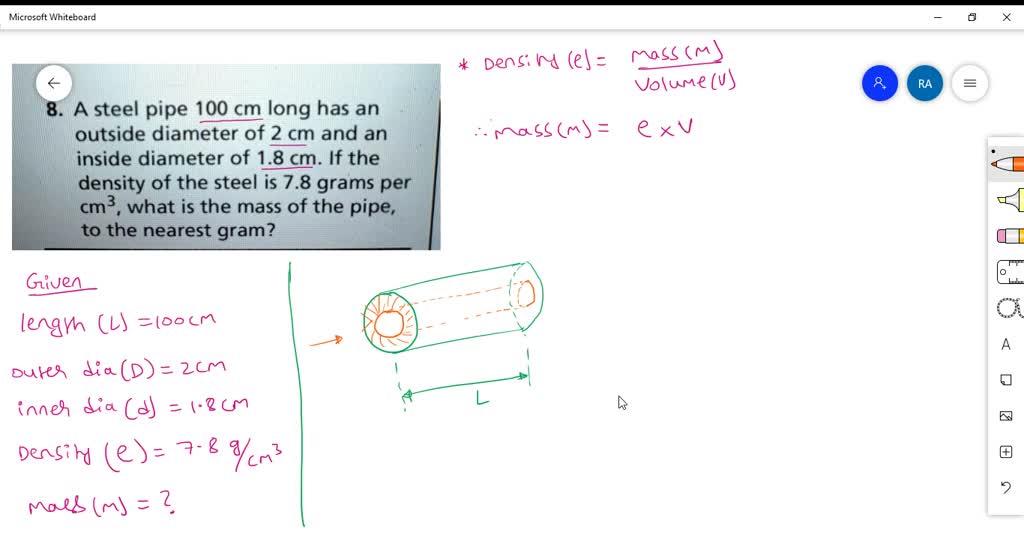 Microsoft Whiteboard
8. A steel pipe 100 cm long has an
outside diameter of 2 cm and an
inside diameter of 1.8 cm. If the
density of the steel is 7.8 grams per
cm³, what is the mass of the pipe,
to the nearest gram?
* Density (e) = mass (M) / Volume (V)
∴ mass (M) = e × V
RA
A
Given
length (L) = 100 cm
outer dia (D) = 2 cm
inner dia (d) = 1.8 cm
Density (e) = 7.8 g/cm³
mass (M) = ?
L